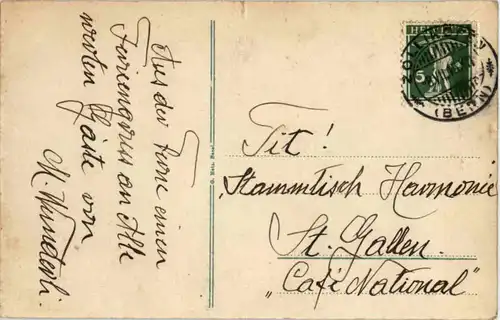 Aus der Ferne einen
Feriengruss an Alle
werten Gäste von
M. Wunderli.
Tit!
Stammtisch Harmonie
St. Gallen.
„Café National"
HELVETIA
5
ZOLLIKOFEN
(BERN)